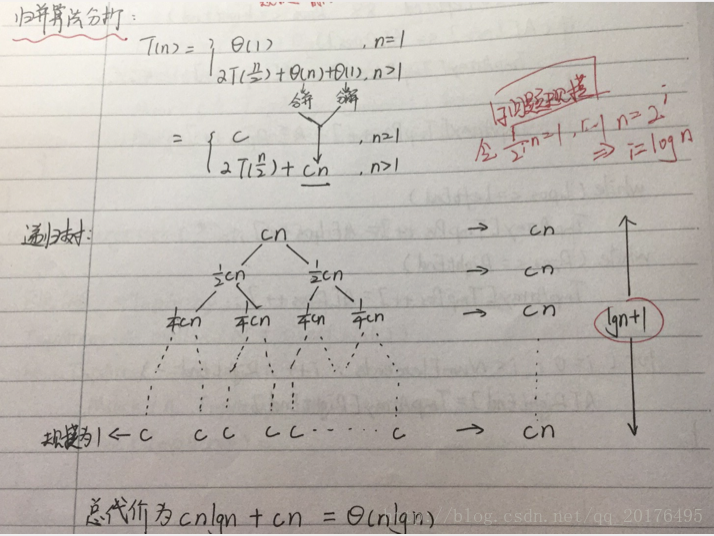 归并算法分析:
T(n) = { Θ(1) , n=1
2T(n/2)+Θ(n)+Θ(1), n>1
合并 分解
= { C , n=1
2T(n/2) + cn , n>1
子问题规模
令 1/2^i n=1, n=2^i
⇒ i=logn
递归树:
cn → cn
1/2cn 1/2cn → cn
1/4cn 1/4cn 1/4cn 1/4cn → cn
lgn+1
规模为1 ← c c c c c ...... c → cn
总代价为cnlgn + cn = Θ(nlgn)
http://blog.csdn.net/qq_20176495